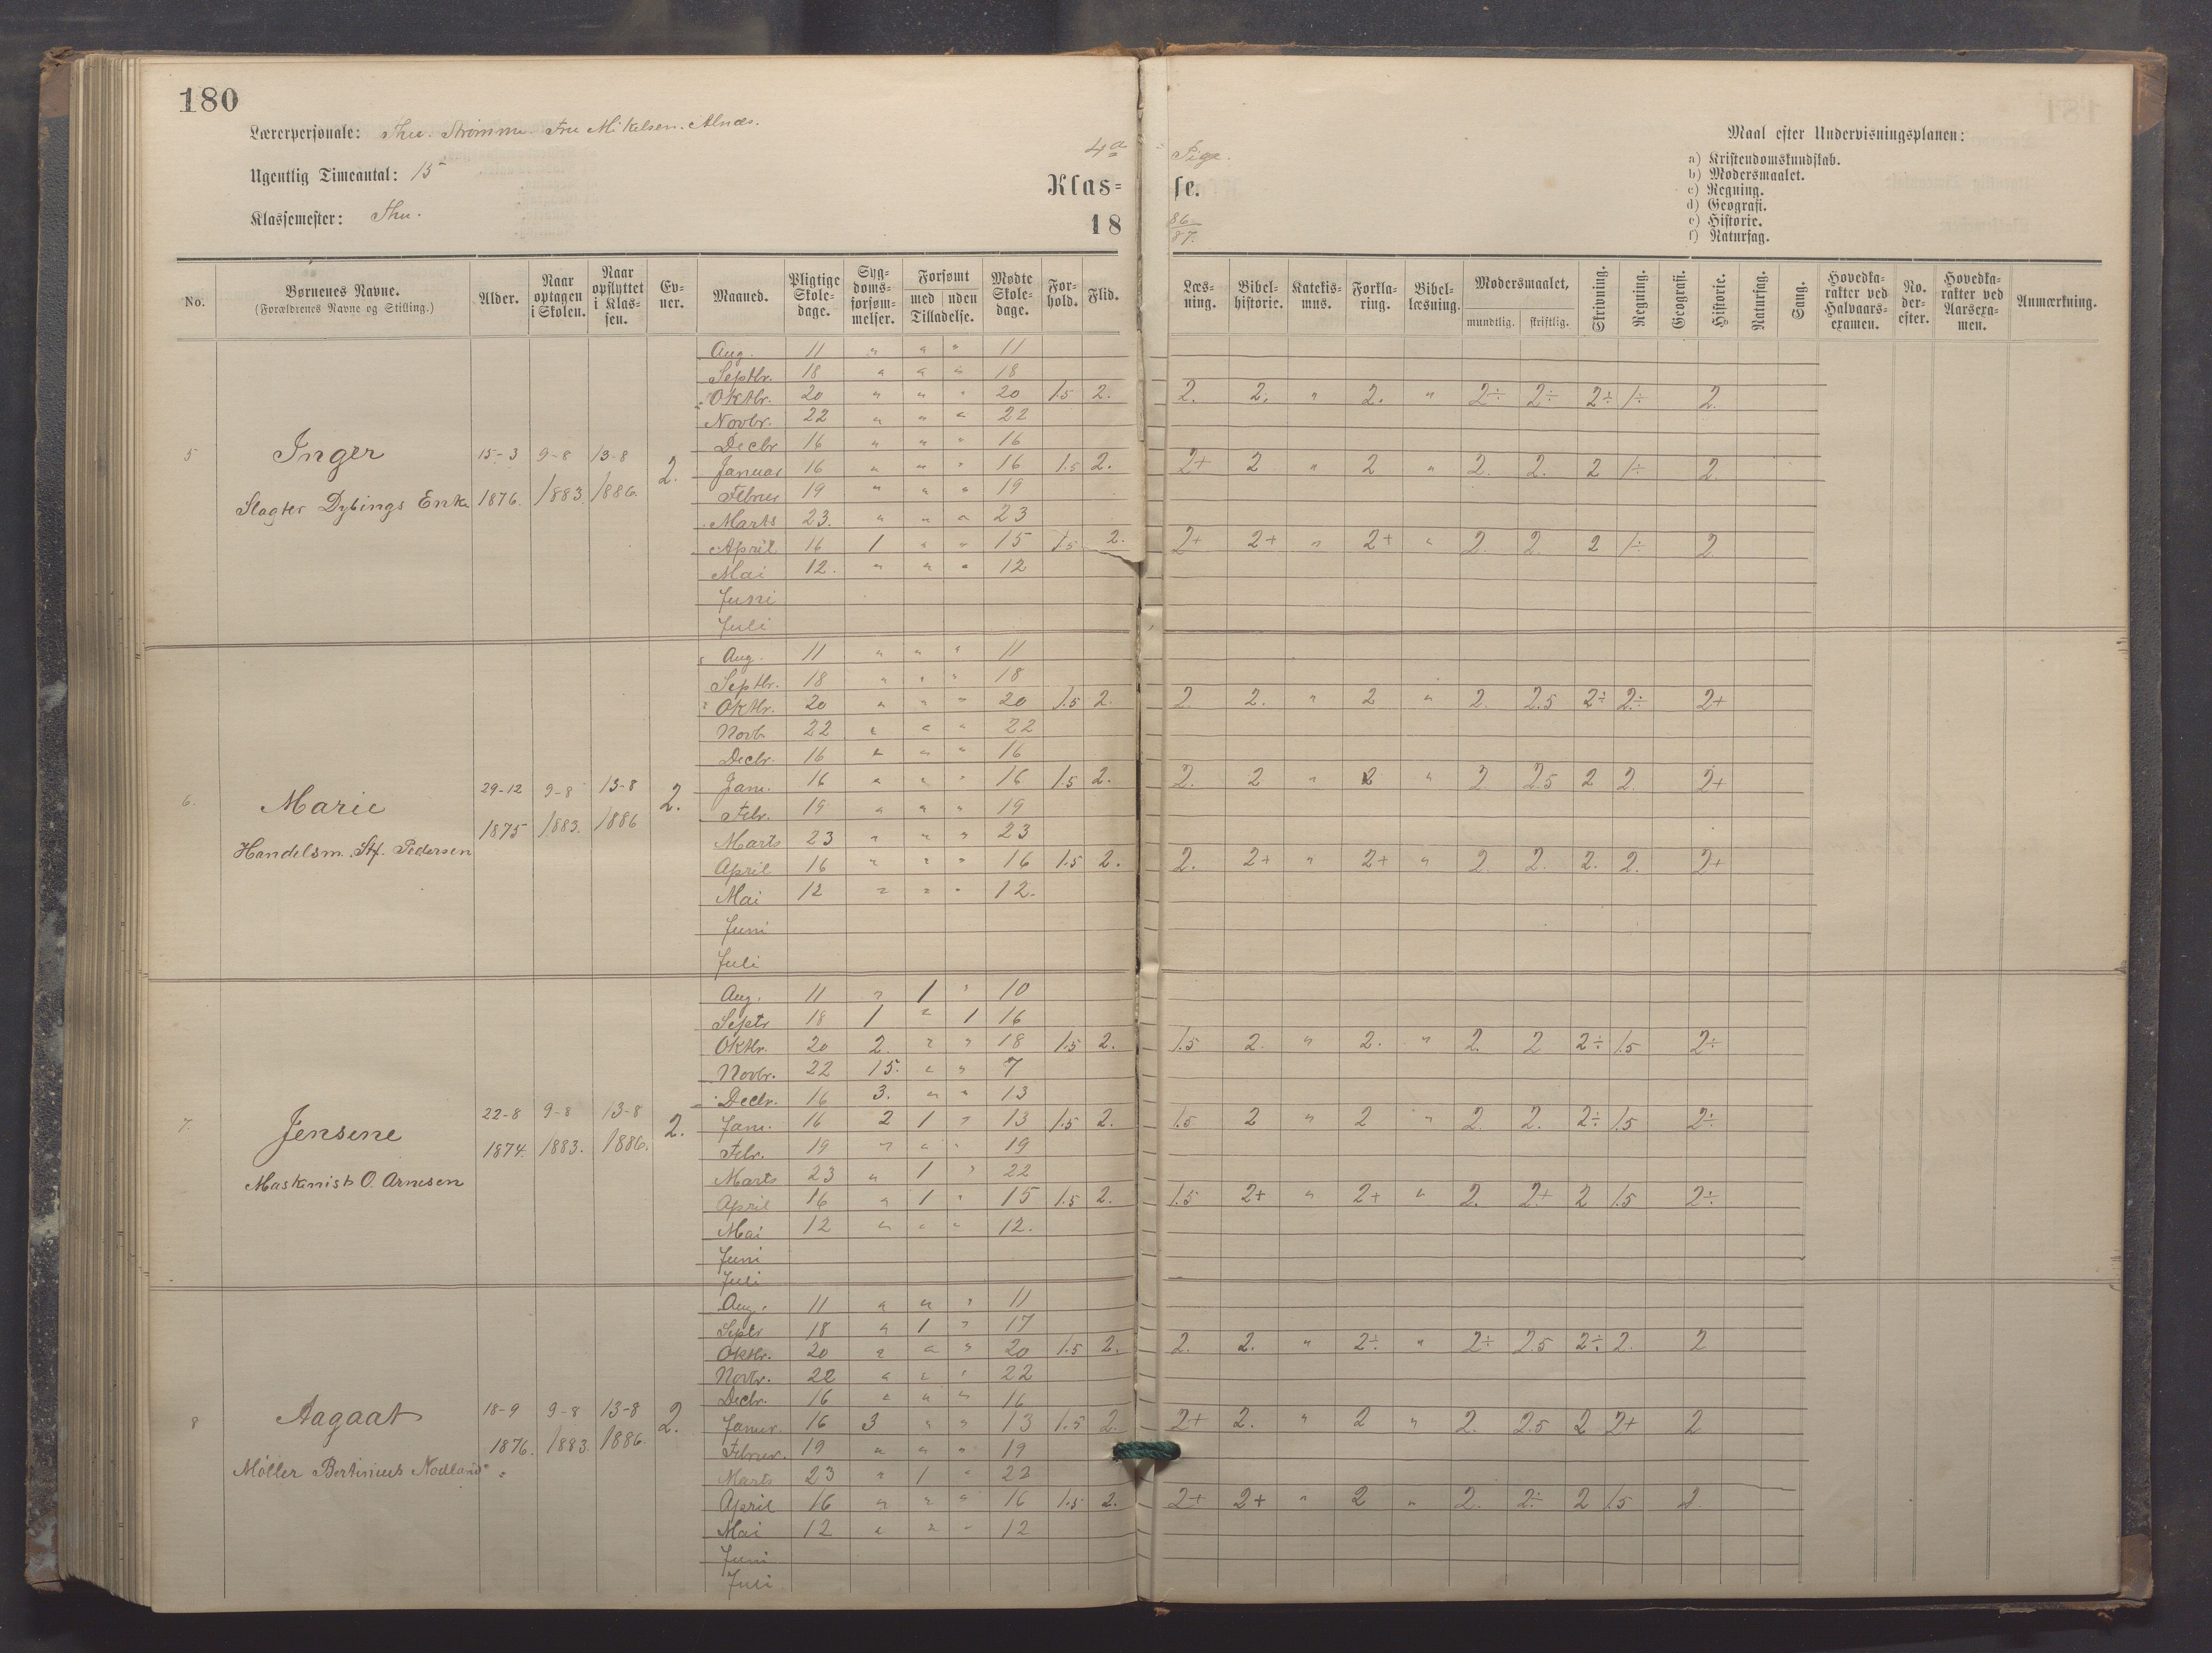 180
Lærerpersonale: Thu. Strømme. Fru Mikelsen. Alnæs.
Ugentlig Timeantal: 15
Klassemester: Thu.
4a Pige.
Klas= se.
18 86/87.
Maal efter Undervisningsplanen:
a) Kristendomskundskab.
b) Modersmaalet.
c) Regning.
d) Geografi.
e) Historie.
f) Naturfag.
No. | Børnenes Navne. (Forældrenes Navne og Stilling.) | Alder. | Naar optagen i Skolen. | Naar opflyttet i Klas-sen. | Ev-ner. | Maaned. | Pligtige Skole-dage. | Syg-doms-forsøm-melser. | Forsømt med uden Tilladelse. | Mødte Skole-dage. | For-hold. | Flid. | Læs-ning. | Bibel-historie. | Katekis-mus. | Forkla-ring. | Bibel-læsning. | Modersmaalet. mundtlig. skriftlig. | Skrivning. | Regning. | Geografi. | Historie. | Naturfag. | Sang. | Hovedka-rakter ved Halvaars-examen. | No. der-efter. | Hovedka-rakter ved Aarsexa-men. | Anmærkning.
5 Inger 15-3 1876. 9-8 1883. 13-8 1886. 2.
Slagter Dybings Enke
Aug. 11 " " " 11
Septbr. 18 " " " 18
Oktbr. 20 " " " 20 1.5 2. 2. 2. " 2. " 2÷ 2÷ 2÷ 1÷ 2.
Novbr. 22 " " " 22
Decbr 16 " " " 16
Januar 16 " " " 16 1.5 2. 2+ 2 " 2 " 2. 2. 2 1÷ 2.
Februr 19 " " " 19
Marts 23. " " " 23
April 16 1 " " 15 1.5 2. 2+ 2+ " 2+ " 2. 2. 2 1÷ 2
Mai 12. " " " 12
Juni
Juli
6. Marie 29-12 1875 9-8 1883. 13-8 1886 2.
Handelsm. Stf. Pedersen
Aug. 11 " " " 11
Septbr. 18 " " " 18
Oktbr. 20 " " " 20 1.5 2. 2. 2. " 2 " 2. 2.5 2÷ 2÷ 2+
Novb 22 " " " 22
Decbr. 16 " " " 16
Jan. 16 " " " 16 1.5 2. 2. 2 " 2 " 2 2.5 2 2. 2+
Febr. 19 " " " 19
Marts 23 " " " 23
April 16 " " " 16 1.5 2. 2. 2+ " 2+ " 2. 2. 2. 2. 2+
Mai 12 " " " 12.
Juni
Juli
7. Jensine 22-8 1874. 9-8 1883. 13-8 1886. 2.
Maskinist O. Arnesen
Aug. 11 " 1 " 10
Septr 18 1 " 1 16
Oktbr. 20 2. " " 18 1.5 2. 1.5 2. " 2. " 2. 2 2÷ 1.5 2÷
Novbr. 22 15. " " 7
Decbr. 16 3. " " 13
Jan. 16 2 1 " 13 1.5 2. 1.5 2 " 2 " 2. 2. 2÷ 1.5 2÷
Febr. 19 " " " 19
Marts 23 " 1 " 22
April 16 " 1 " 15 1.5 2. 1.5 2+ " 2+ " 2. 2+ 2 1.5 2÷
Mai 12 " " " 12.
Juni
Juli
8 Aagaat 18-9 1876. 9-8 1883. 13-8 1886. 2.
Møller Bertinius Nodland
Aug. 11 " " " 11
Septr 18 " 1 " 17
Oktbr. 20 " " " 20 1.5 2. 2. 2. " 2÷ " 2÷ 2.5 2÷ 2. 2
Novbr. 22 " " " 22
Decbr. 16 " " " 16
Janur. 16 3 " " 13 1.5 2. 2+ 2. " 2 " 2. 2.5 2 2+ 2
Februr. 19 " " " 19
Marts 23 " 1 " 22
April 16 " " " 16 1.5 2. 2+ 2+ " 2 " 2. 2÷ 2 1.5 2.
Mai 12 " " " 12
Juni
Juli